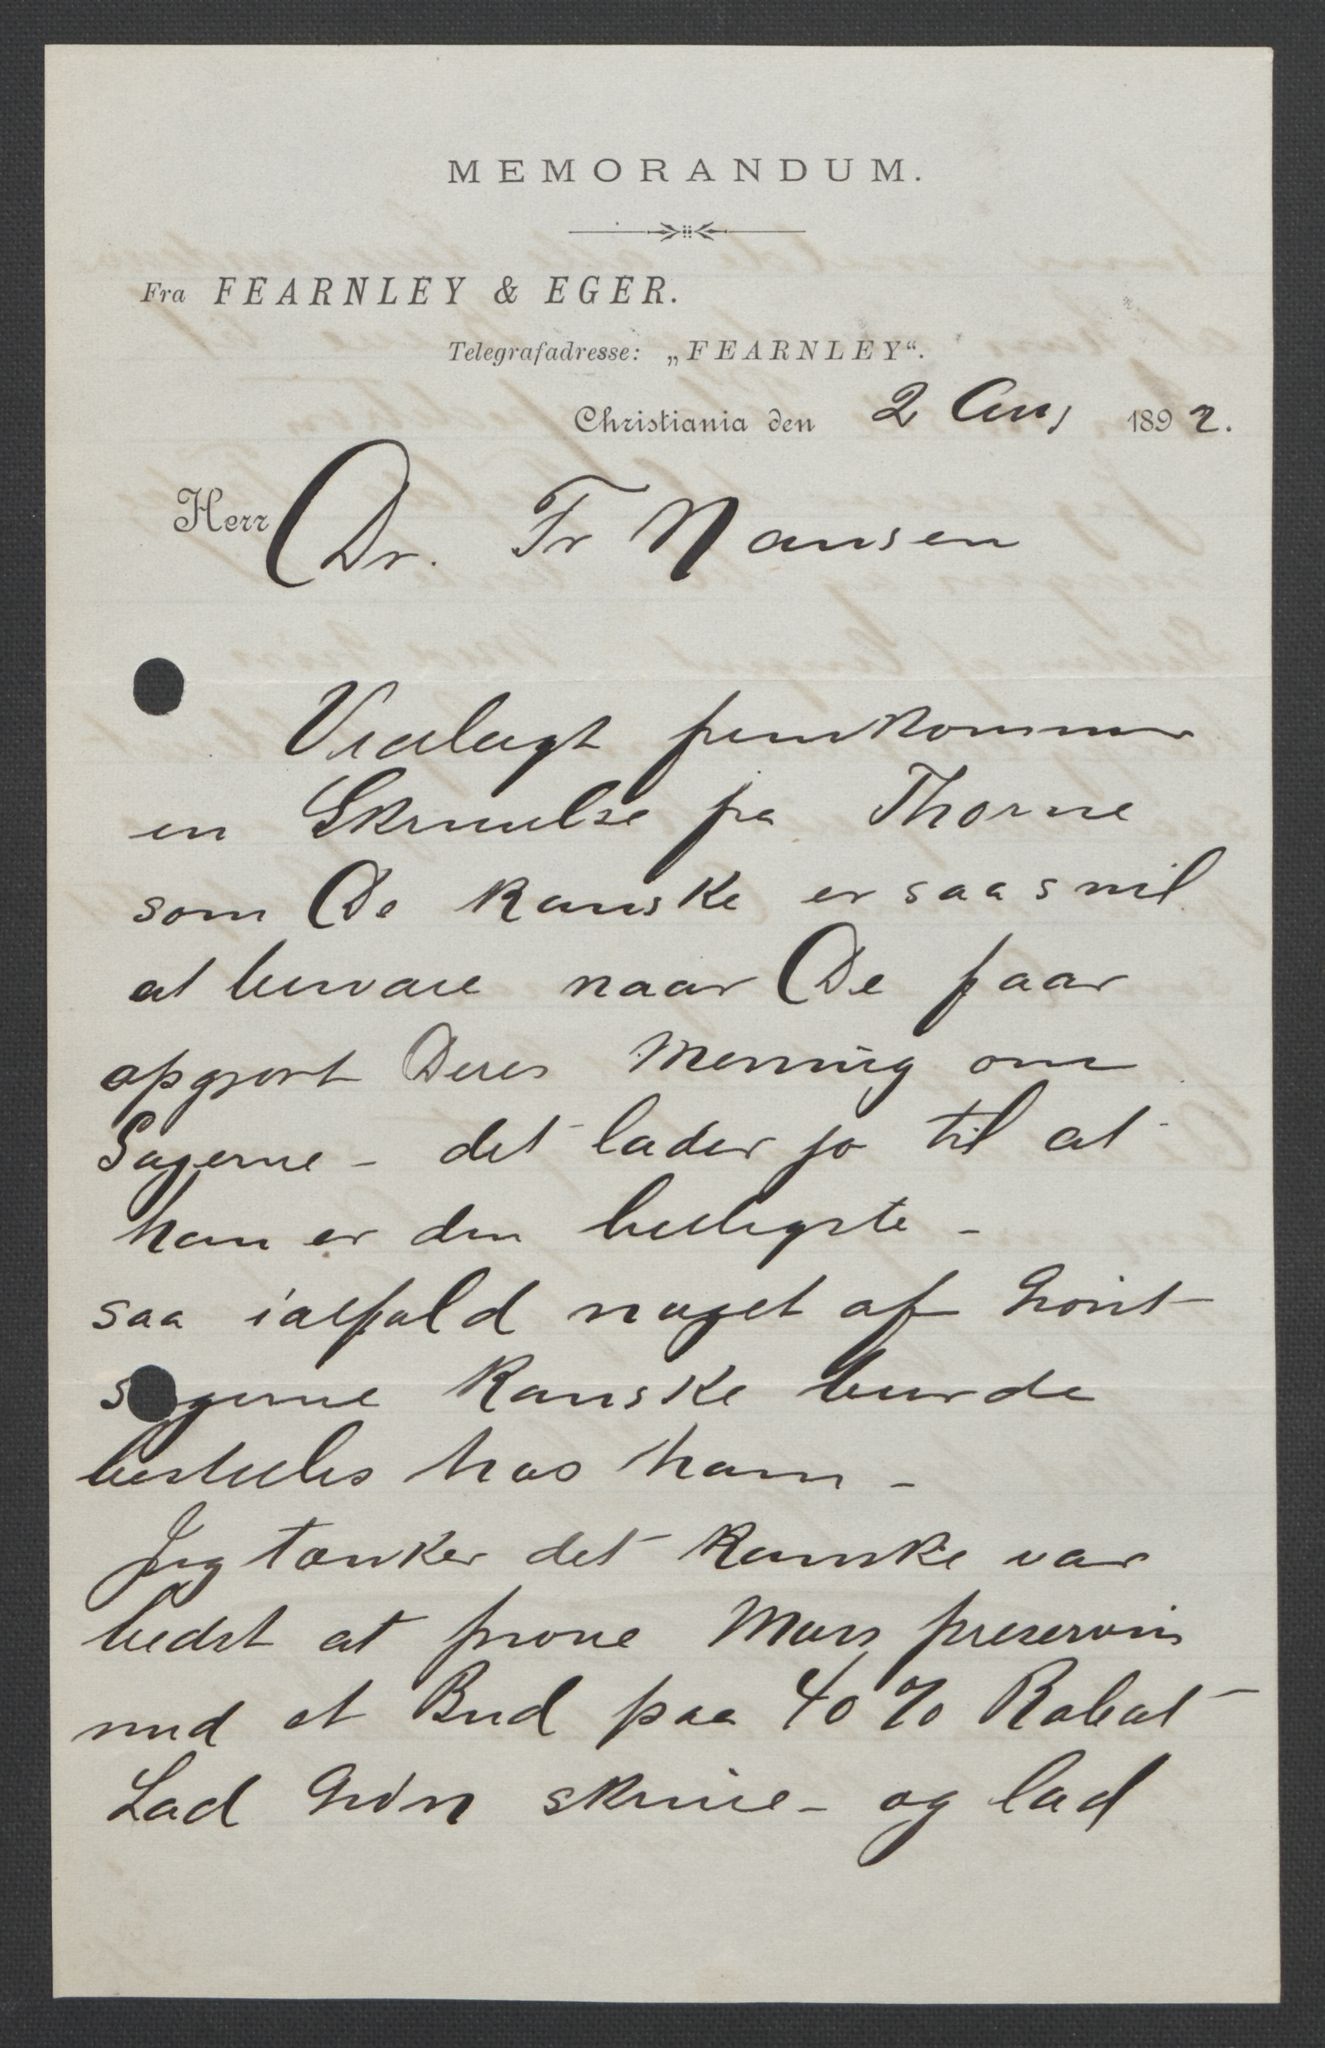 MEMORANDUM.
Fra FEARNLEY & EGER.
Telegrafadresse: „FEARNLEY“.
Christiania den 2 Aug 1892.
Herr Dr. Fr Nansen
Vedlagt fremkommer
en Skrivelse fra Thorne
som De kanske er saa snil
at bevare naar De faar
opgjort Deres Mening om
Sagerne – det lader jo til at
han er den billigste –
saa ialfald noget af
sagerne kanske burde
bestilles hos ham –
Jeg tænker det kanske var
bedst at prøve preserving
med et Bud paa 40% Rabat
Lad skrive – og lad